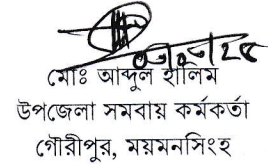 মোঃ আব্দুল হালিম
উপজেলা সমবায় কর্মকর্তা
গৌরীপুর, ময়মনসিংহ